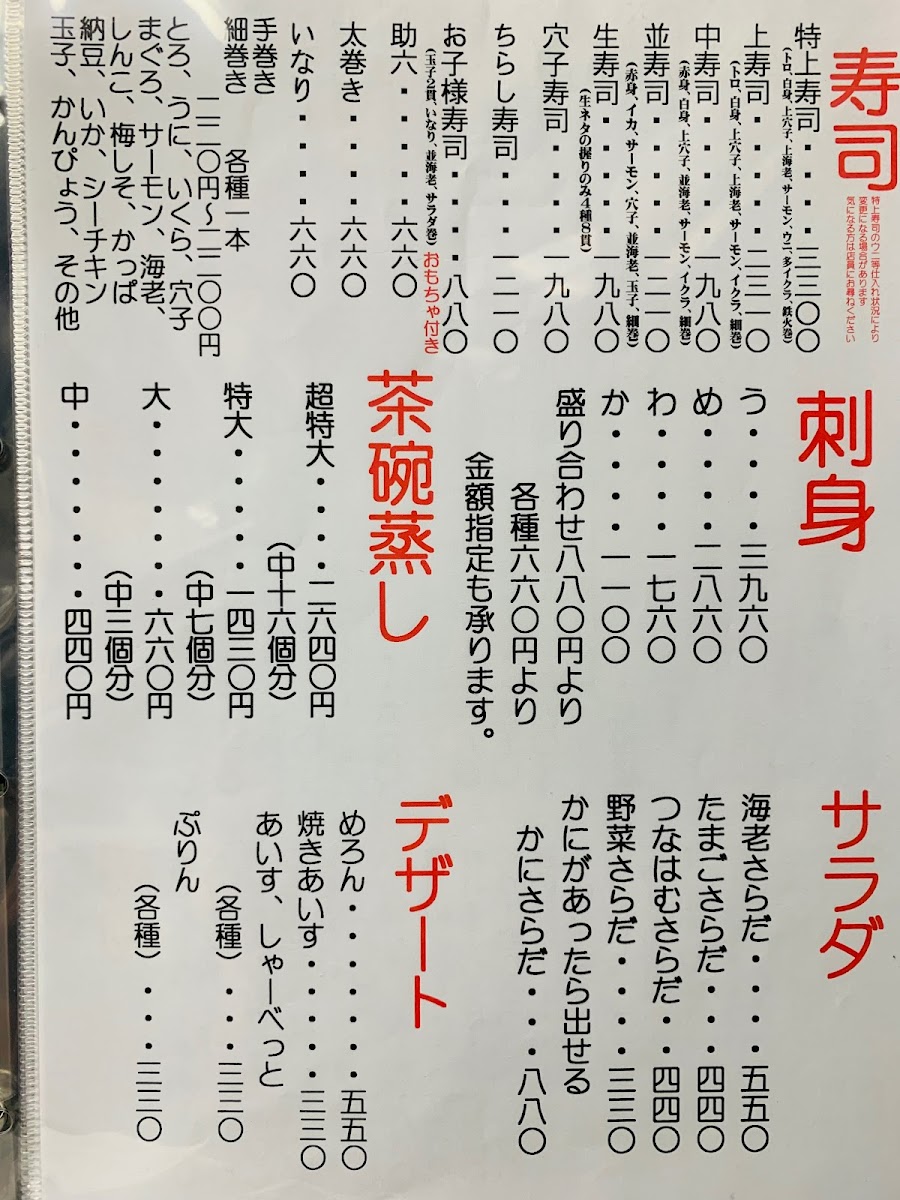 寿司
特上寿司のウニ等仕入れ状況により
変更になる場合があります
気になる方は店員にお尋ねください
特上寿司・・・・三三〇〇
(トロ、白身、上穴子、上海老、サーモン、ウニ、多イクラ、鉄火巻)
上寿司・・・・・二三一〇
(トロ、白身、上穴子、上海老、サーモン、イクラ、細巻)
中寿司・・・・・一九八〇
(赤身、白身、上穴子、並海老、サーモン、イクラ、細巻)
並寿司・・・・・一二一〇
(赤身、イカ、サーモン、穴子、並海老、玉子、細巻)
生寿司・・・・・一九八〇
(生ネタの握りのみ4種8貫)
穴子寿司・・・・一九八〇
ちらし寿司・・・一二一〇
お子様寿司・・・・八八〇
(玉子2貫、いなり、並海老、サラダ巻)おもちゃ付き
助六・・・・・六六〇
太巻き・・・・六六〇
いなり・・・・六六〇
手巻き
細巻き　各種一本
二二〇円〜二二〇〇円
とろ、うに、いくら、穴子
まぐろ、サーモン、海老、
しんこ、梅しそ、かっぱ
納豆、いか、シーチキン
玉子、かんぴょう、その他
刺身
う・・・・三九六〇
め・・・・二八六〇
わ・・・・一七六〇
か・・・・一一〇〇
盛り合わせ八八〇円より
各種六六〇円より
金額指定も承ります。
茶碗蒸し
超特大・・・二六四〇円
(中十六個分)
特大・・・・一四三〇円
(中七個分)
大・・・・・・六六〇円
(中三個分)
中・・・・・・四四〇円
サラダ
海老さらだ・・・・五五〇
たまごさらだ・・・四四〇
つなはむさらだ・・四四〇
野菜さらだ・・・・三三〇
かにがあったら出せる
かにさらだ・・・八八〇
デザート
めろん・・・・・・・五五〇
焼きあいす・・・・・三三〇
あいす、しゃーべっと
(各種)・・・三三〇
ぷりん
(各種)・・・三三〇